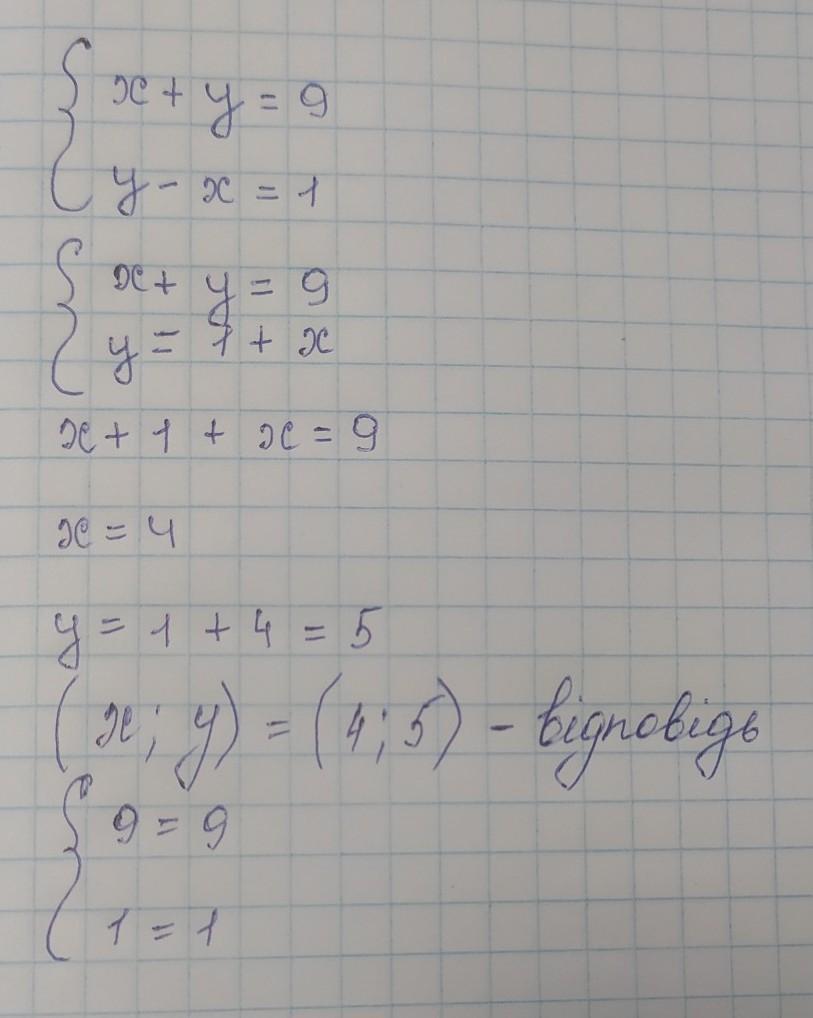 { x + y = 9
y - x = 1
{ x + y = 9
y = 1 + x
x + 1 + x = 9
x = 4
y = 1 + 4 = 5
(x; y) = (4; 5) - відповідь
{ 9 = 9
1 = 1